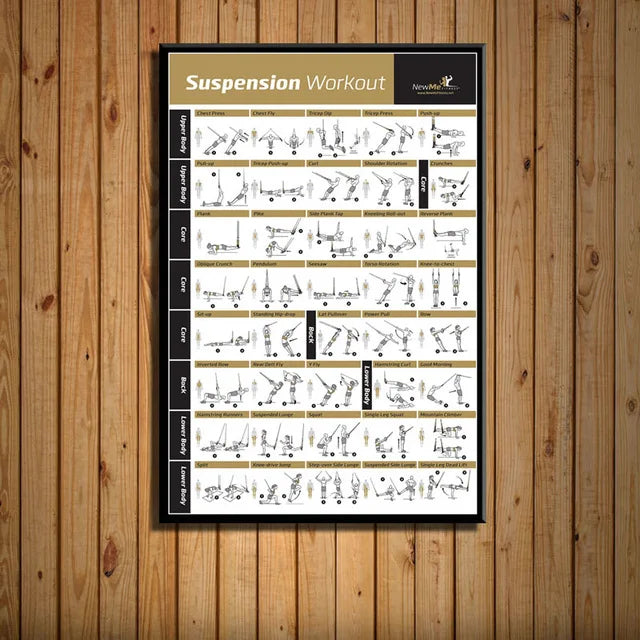 Suspension Workout
NewMe
FITNESS
www.NewMeFitness.net
Upper Body
Chest Press Chest Fly Tricep Dip Tricep Press Push-up
Upper Body
Pull-up Tricep Push-up Curl Shoulder Rotation
Core
Crunches
Core
Plank Pike Side Plank Tap Kneeling Roll-out Reverse Plank
Core
Oblique Crunch Pendulum Seesaw Torso Rotation Knee-to-chest
Core
Sit-up Standing Hip-drop
Back
Lat Pullover Power Pull Row
Back
Inverted Row Rear Delt Fly Y Fly
Lower Body
Hamstring Curl Good Morning
Lower Body
Hamstring Runners Suspended Lunge Squat Single Leg Squat Mountain Climber
Lower Body
Split Knee-drive Jump Step-over Side Lunge Suspended Side Lunge Single Leg Dead Lift